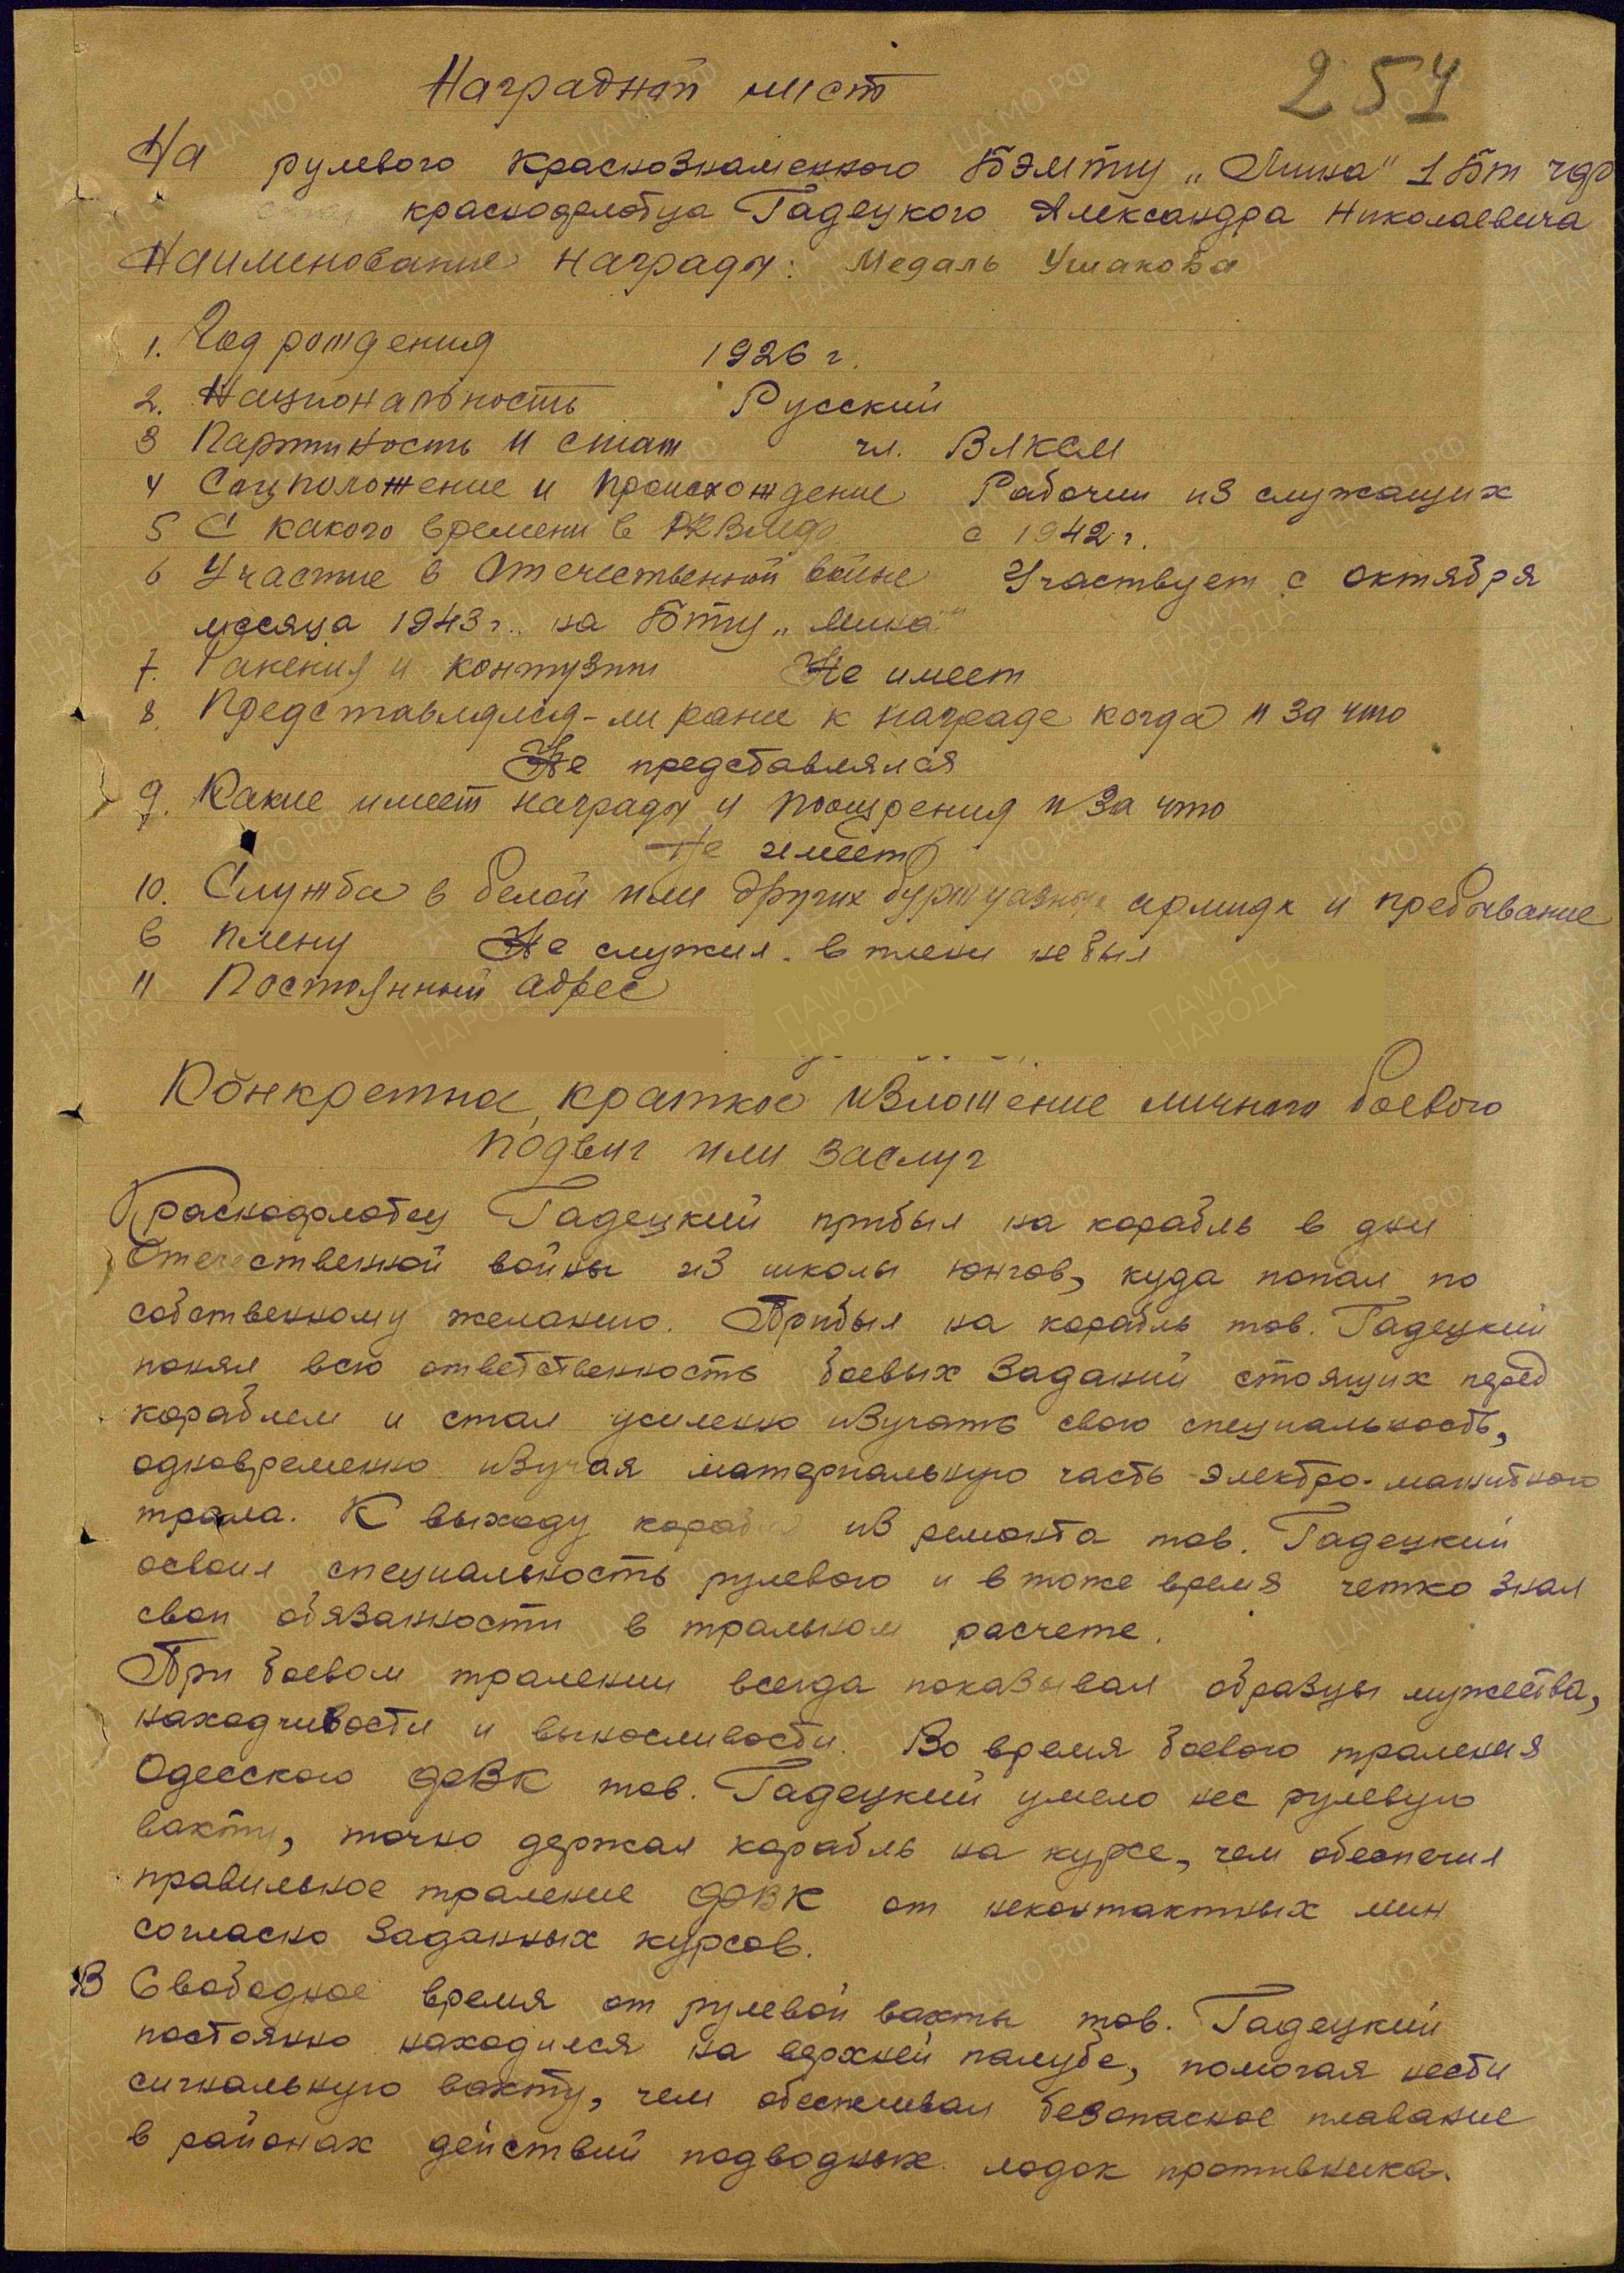 Наградной лист
257
На рулевого Краснознаменного БЭМТЩ „Мина" 1 Бт ЧФ
краснофлотца Гадецкого Александра Николаевича
Наименование награды: Медаль Ушакова
1. Год рождения 1926 г.
2. Национальность Русский
3 Партийность и стаж чл. ВЛКСМ
4 Соцположение и происхождение Рабочий из служащих
5 С какого времени в РКВМФ с 1942 г.
6 Участие в Отечественной войне Участвует с октября
месяца 1943 г. на Бтщ „Мина"
7. Ранения и контузии Не имеет
8. Представлялся-ли ранее к награде когда и за что
Не представлялся
9. Какие имеет награды и поощрения и за что
Не имеет
10. Служба в белой или других буржуазных армиях и пребывание
в плену Не служил. в плену не был
11 Постоянный адрес
Конкретное, краткое изложение личного боевого
подвиг или заслуг
Краснофлотец Гадецкий прибыл на корабль в дни
Отечественной войны из школы юнгов, куда попал по
собственному желанию. Прибыл на корабль тов. Гадецкий
понял всю ответственность боевых заданий стоящих перед
кораблем и стал усиленно изучать свою специальность,
одновременно изучая материальную часть электро-магнитного
трала. К выходу корабля из ремонта тов. Гадецкий
освоил специальность рулевого и в тоже время четко знал
свои обязанности в тральном расчете.
При боевом тралении всегда показывал образцы мужества,
находчивости и выносливости. Во время боевого траления
Одесского ФВК тов. Гадецкий умело нес рулевую
вахту, точно держал корабль на курсе, чем обеспечил
правильное траление ФВК от неконтактных мин
согласно заданных курсов.
В Свободное время от рулевой вахты тов. Гадецкий
постоянно находился на верхней палубе, помогая нести
сигнальную вахту, чем обеспечивал безопасное плавание
в районах действий подводных лодок противника.